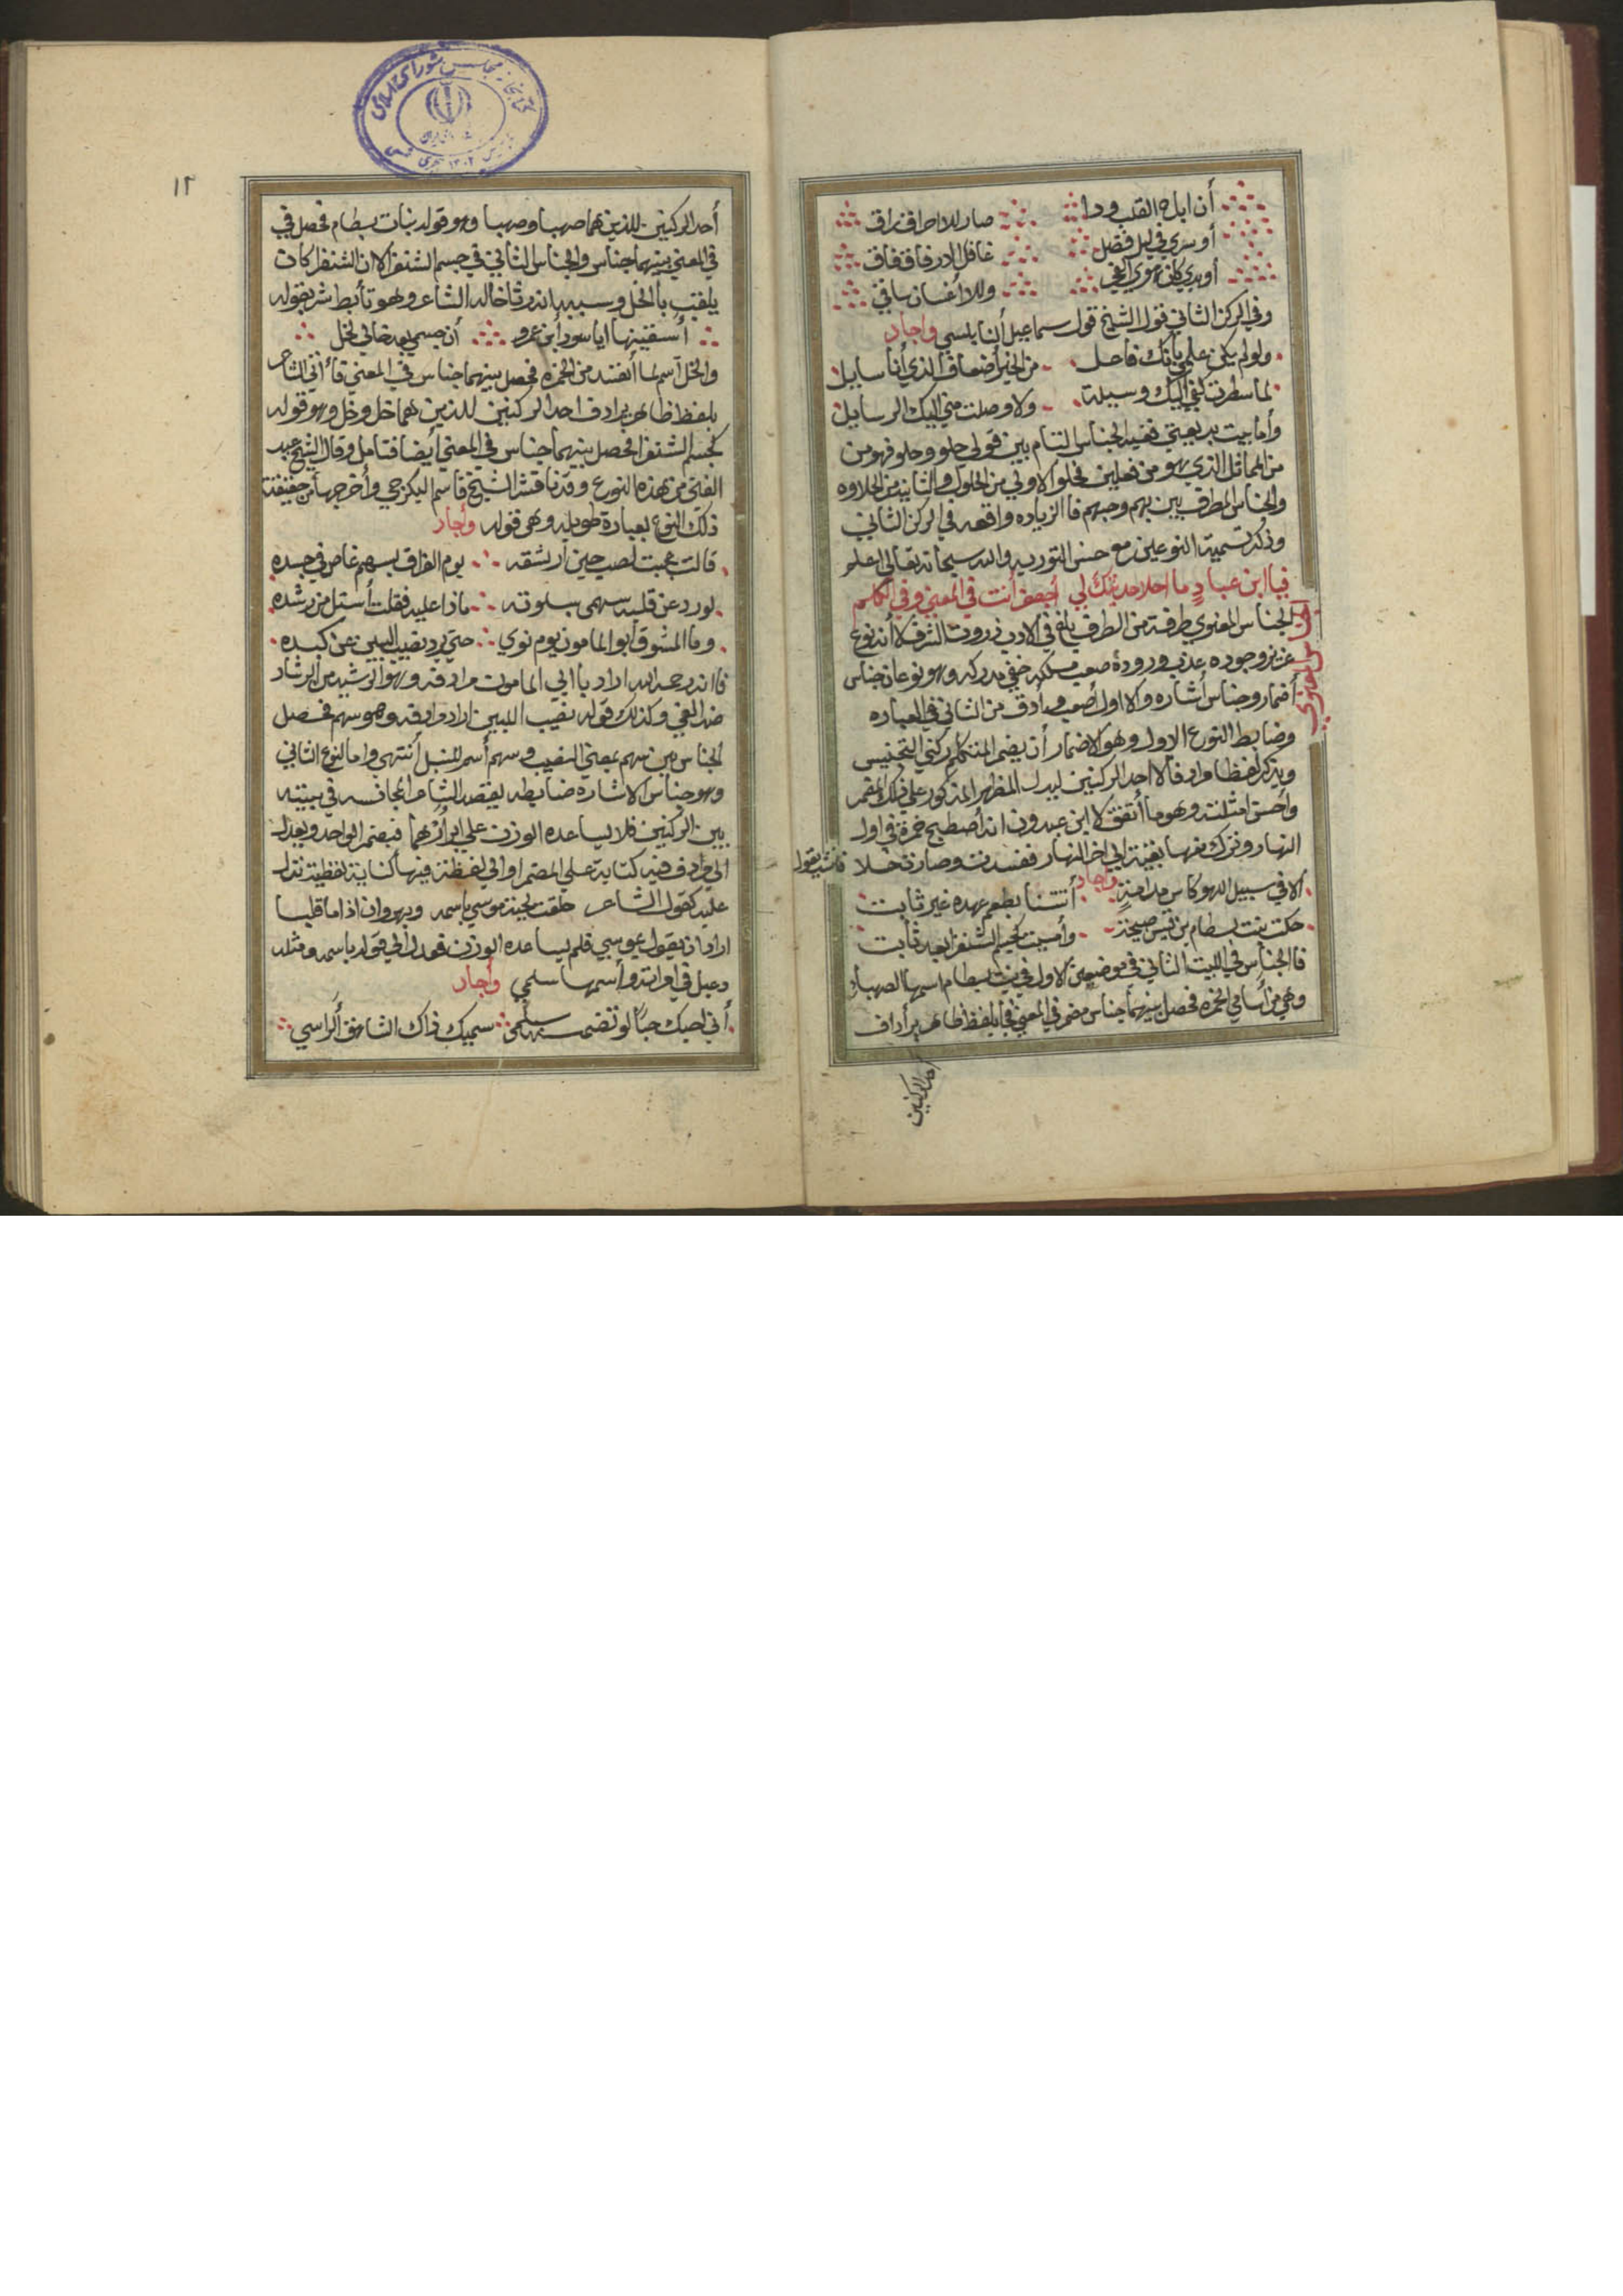 أن اباح القلب ودا صار للاحراق راق
أو سري في ليل فضل غافل الارفاق فاق
أو بدي كان عوي الغي وللاغسان ساقي
وفي الركن الثاني قول الشيخ قول سماعيل أنابلسي واجاد
ولو لم يكن علمي بأنك فاعل من الخير أضعاف الذي أنا سايل
لما سطرت كفي اليك وسيلة ولا وصلت مني اليك الرسايل
وأما بيت بديعيتي ففيه الجناس التام بين قولي حلو وحلو فهو من
من المماثل الذي هو من فعلين فحلو الاولي من الحلول والثانيه من الحلاوه
والجناس المطرف بين بهم وجبهم فاالزياده واقعه في الركن الثاني
وذكر تسمية النوعين مع حسن التوريه والله سبحانه تعالى اعلم
فيا ابن عباد ما احلا حديثك لي أجعفر أنت في المعني وفي الكلم
الجناس المعنوي
الجناس المعنوي طرفة من الطرف يلغ في الادب ذروت الشرف لا أنه نوع
عزيز وجوده عذب وروده صعب مسلكه خفي مدركه وهو نوعان جناس
أضمار وجناس أشاره والاول أصعب وأدق من الثاني في العباره
وضابط النوع الاول وهو الاضمار أن يضمر المتكلم ركني التجنيس
ويذكر لفظا مرادفا لاحد الركنين ليدل المظهر المذكور علي ذلك المضمر
واحسن امثلته وهو ما أتفق لابن عبدون انه أصطبح خمرة في اول
النهار وترك منها بقية الي اخر النهار ففسدت وصارت خلا فأنشد يقول
واجاد
الا في سبيل اللهو كاس مدامة أتتنا بطعم عهده غير ثابت
حكت بنت بسطام بن قيس صبيحة وأمست كجسم الشنفرا بعد ثابت
فاالجناس في البيت الثاني في موضعين الاول في بنت بسطام اسمها الصهبا
وهي من أسامي الخمره فحصل بينهما جناس مضمر في المعني فجا بلفظ ظاهر يرادف
احد الركنين
١٢
أحد الركنين للذين هما صهبا وصهبا وهو قوله بنات بسطام فحصل في
في المعني بينهما جناس والجناس الثاني في جسم الشنفرا لان الشنفرا كان
يلقب بالخل وسببه انه رثا خاله الشاعر وهو تأبط شر بقوله
أسقينها ايا سواد ابن عمرو أن جسمي بعد خالي لخل
والخل أسم لما أفسد من الخمره فحصل بينهما جناس في المعني فأتي الشاعر
بلفظ ظاهر يرادف احد الركنين للذين هما خل وخل وهو قوله
كجسم الشنفرا فحصل بينهما جناس في المعني أيضا فتامل وقال الشيخ عبد
الغني من هذه النوع وقد ناقش الشيخ قاسم البكرجي وأخرجها من حقيقة
ذلك النوع بعبارة طويله وهي قوله وأجاد
قالت عجبت لصب حين ارشقه يوم الفراق بسهم غاص في جسده
لورد عن قلبه سهمي بسلوته ماذا عليه فقلت أستل من رشده
وما المشوق أبو المامون يوم نوي حتي يرد نصيب البين عن كبده
فاانه رحمه الله اراد باابي المامون مرادفه وهو الرشيد من الرشاد
ضد الغي وكذلك قوله نصيب البين اراد مرادفه وهو سهم فحصل
الجناس بين سهم بمعني النصيب وسهم أسم للنبل أنتهي واما النوع الثاني
وهو جناس الاشاره ضابطه يقصد الشاعر المجانسه في بيته
بين الركنين فلا يساعده الوزن علي ابرازهما فيضمر الواحد ويعدل
الي مرادف فيه كناية علي المضمر او الي لفظة فيها كناية لفظية تدل
عليه كقول الشاعر حلقت لحية موسي باسمه وبهرون اذا ما قلبا
اراد ان يقول بموسي فلم يساعده الوزن فعدل الي قوله باسمه ومثله
دعبل في امراته وأسمها سلمي وأجاد
أني احبك حبا لو تضمنه سلمي سميك ذاك الشاهق الراسي